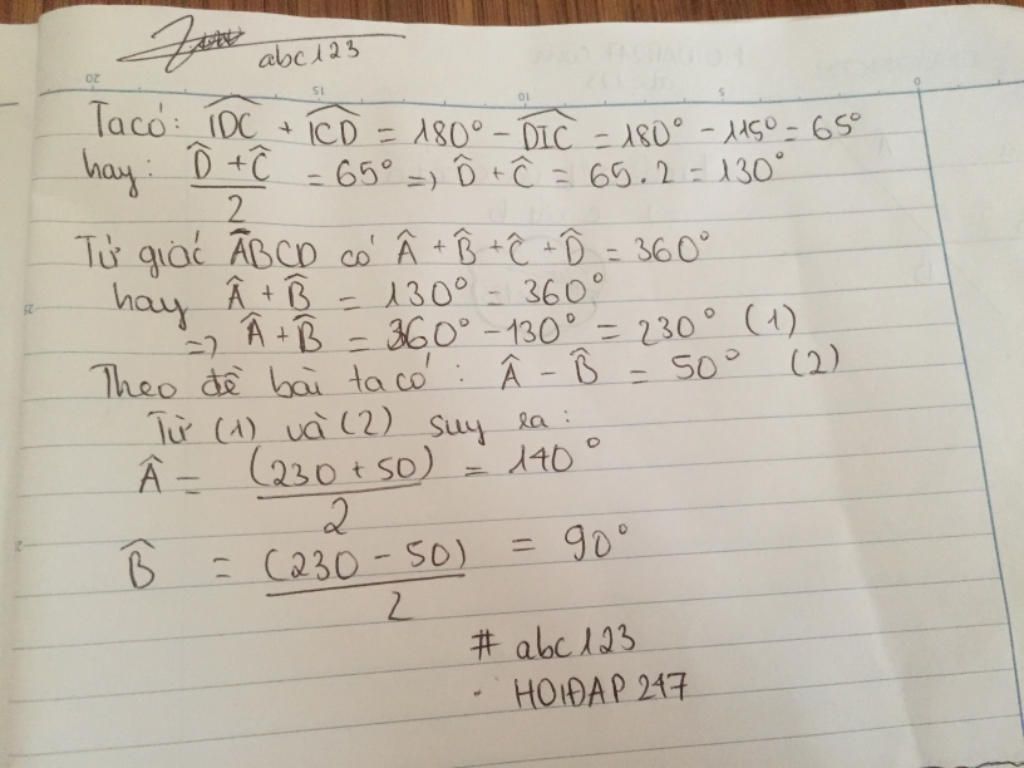 abc123
20 15 10 5 0
Ta có: IDC + ICD = 180° - DIC = 180° - 115° = 65°
hay: (D̂ + Ĉ)/2 = 65° => D̂ + Ĉ = 65.2 = 130°
Tứ giác ABCD có Â + B̂ + Ĉ + D̂ = 360°
hay Â + B̂ = 130° = 360°
=> Â + B̂ = 360° - 130° = 230° (1)
Theo đề bài ta có: Â - B̂ = 50° (2)
Từ (1) và (2) suy ra:
Â = (230 + 50)/2 = 140°
B̂ = (230 - 50)/2 = 90°
# abc123
. HOIĐAP 247